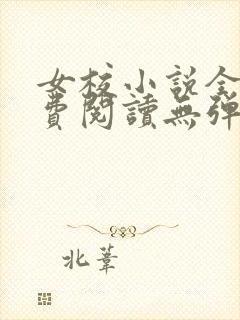 女校小说全
費閱讀無彈
北葦